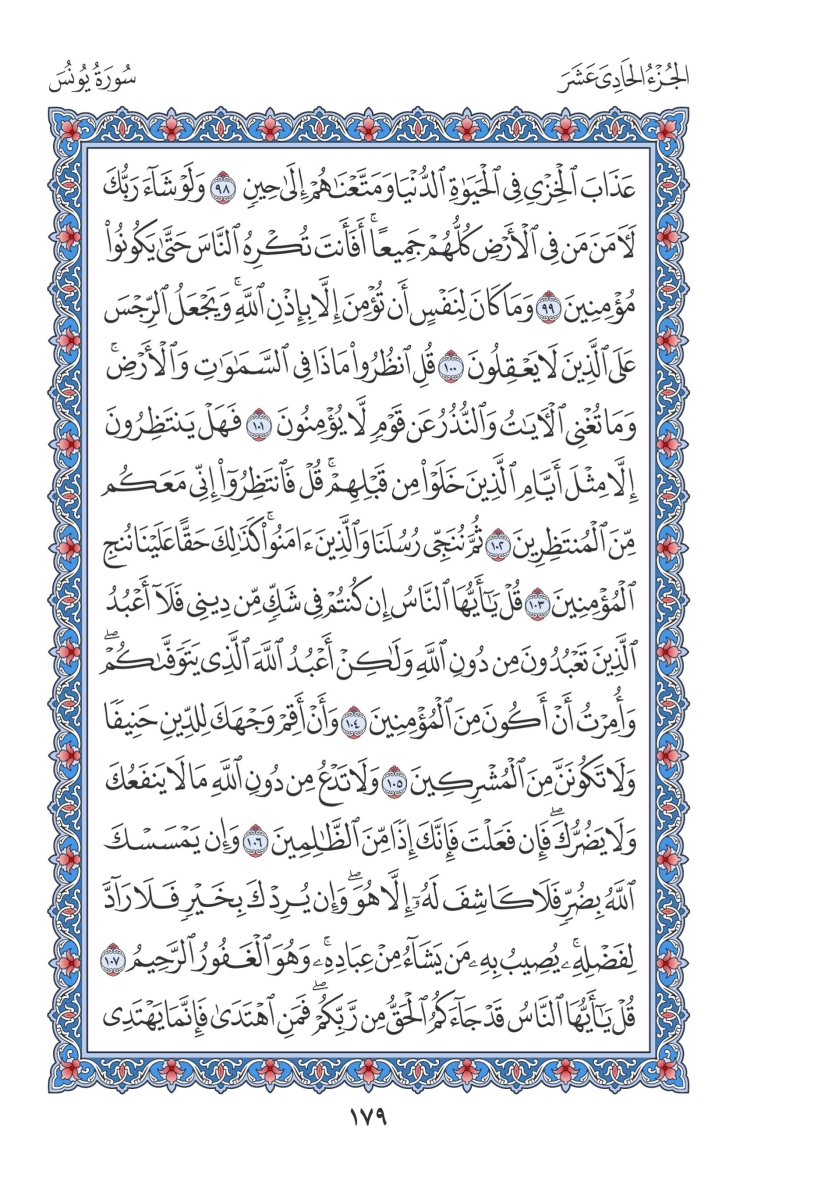 الجُزْءُ الحَادِىَ عَشَرَ
سُورَةُ يُونُسَ
عَذَابَ ٱلْخِزْىِ فِى ٱلْحَيَوٰةِ ٱلدُّنْيَا وَمَتَّعْنَٰهُمْ إِلَىٰ حِينٍ ٩٨ وَلَوْ شَآءَ رَبُّكَ
لَءَامَنَ مَن فِى ٱلْأَرْضِ كُلُّهُمْ جَمِيعًا ۚ أَفَأَنتَ تُكْرِهُ ٱلنَّاسَ حَتَّىٰ يَكُونُوا۟
مُؤْمِنِينَ ٩٩ وَمَا كَانَ لِنَفْسٍ أَن تُؤْمِنَ إِلَّا بِإِذْنِ ٱللَّهِ ۚ وَيَجْعَلُ ٱلرِّجْسَ
عَلَى ٱلَّذِينَ لَا يَعْقِلُونَ ١٠٠ قُلِ ٱنظُرُوا۟ مَاذَا فِى ٱلسَّمَٰوَٰتِ وَٱلْأَرْضِ ۚ
وَمَا تُغْنِى ٱلْءَايَٰتُ وَٱلنُّذُرُ عَن قَوْمٍ لَّا يُؤْمِنُونَ ١٠١ فَهَلْ يَنتَظِرُونَ
إِلَّا مِثْلَ أَيَّامِ ٱلَّذِينَ خَلَوْا۟ مِن قَبْلِهِمْ ۚ قُلْ فَٱنتَظِرُوٓا۟ إِنِّى مَعَكُم
مِّنَ ٱلْمُنتَظِرِينَ ١٠٢ ثُمَّ نُنَجِّى رُسُلَنَا وَٱلَّذِينَ ءَامَنُوا۟ ۚ كَذَٰلِكَ حَقًّا عَلَيْنَا نُنجِ
ٱلْمُؤْمِنِينَ ١٠٣ قُلْ يَٰٓأَيُّهَا ٱلنَّاسُ إِن كُنتُمْ فِى شَكٍّ مِّن دِينِى فَلَآ أَعْبُدُ
ٱلَّذِينَ تَعْبُدُونَ مِن دُونِ ٱللَّهِ وَلَٰكِنْ أَعْبُدُ ٱللَّهَ ٱلَّذِى يَتَوَفَّىٰكُمْ ۖ
وَأُمِرْتُ أَنْ أَكُونَ مِنَ ٱلْمُؤْمِنِينَ ١٠٤ وَأَنْ أَقِمْ وَجْهَكَ لِلدِّينِ حَنِيفًا
وَلَا تَكُونَنَّ مِنَ ٱلْمُشْرِكِينَ ١٠٥ وَلَا تَدْعُ مِن دُونِ ٱللَّهِ مَا لَا يَنفَعُكَ
وَلَا يَضُرُّكَ ۖ فَإِن فَعَلْتَ فَإِنَّكَ إِذًا مِّنَ ٱلظَّٰلِمِينَ ١٠٦ وَإِن يَمْسَسْكَ
ٱللَّهُ بِضُرٍّ فَلَا كَاشِفَ لَهُۥٓ إِلَّا هُوَ ۖ وَإِن يُرِدْكَ بِخَيْرٍ فَلَا رَآدَّ
لِفَضْلِهِۦ ۚ يُصِيبُ بِهِۦ مَن يَشَآءُ مِنْ عِبَادِهِۦ ۚ وَهُوَ ٱلْغَفُورُ ٱلرَّحِيمُ ١٠٧
قُلْ يَٰٓأَيُّهَا ٱلنَّاسُ قَدْ جَآءَكُمُ ٱلْحَقُّ مِن رَّبِّكُمْ ۖ فَمَنِ ٱهْتَدَىٰ فَإِنَّمَا يَهْتَدِى
١٧٩